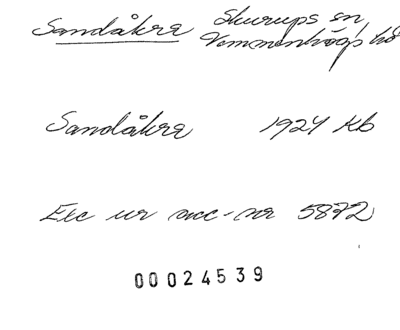 Sandåkra Skurups sn,
Vemmenhögs hd
Sandåkra 1924 Kb
Exc ur acc-nr 5872
00024539